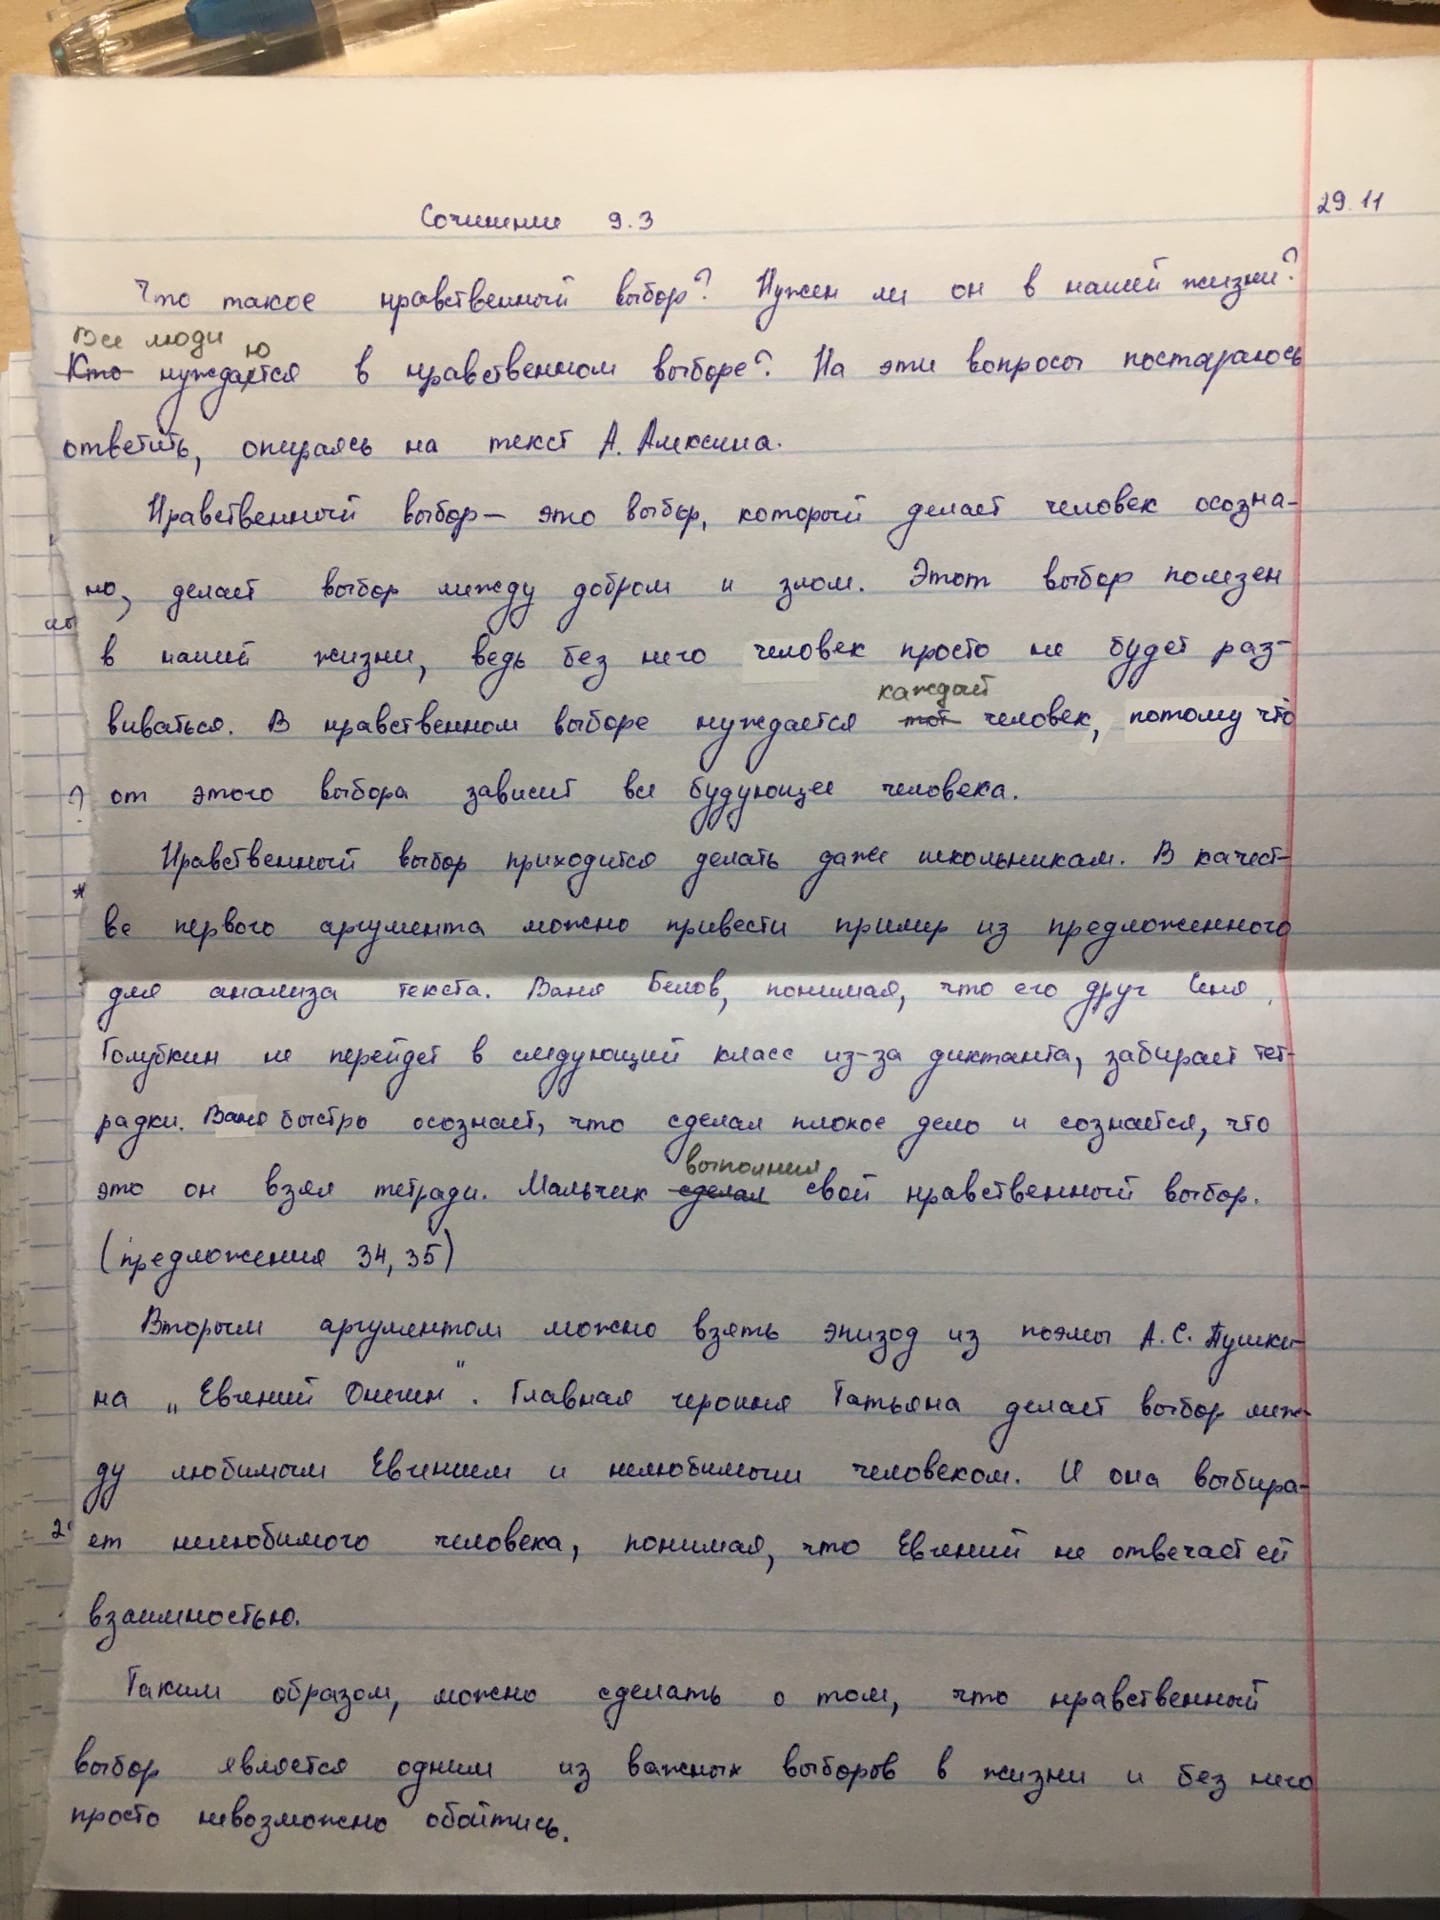 29.11
Сочинение 9.3
Что такое нравственный выбор? Нужен ли он в нашей жизни?
Все люди ю
Кто нуждается в нравственном выборе? На эти вопросы постараюсь
ответить, опираясь на текст А. Алексина.
Нравственный выбор – это выбор, который делает человек осозна-
но, делает выбор между добром и злом. Этот выбор полезен
в нашей жизни, ведь без него человек просто не будет раз-
каждый
виваться. В нравственном выборе нуждается тот человек, потому что
? от этого выбора зависит все будующее человека.
Нравственный выбор приходится делать даже школьникам. В качест-
ве первого аргумента можно привести пример из предложенного
для анализа текста. Ваня Белов, понимая, что его друг Сеня
Голубкин не перейдет в следующий класс из-за диктанта, забирает тет-
радки. Ваня быстро осознает, что сделал плохое дело и сознается, что
выполнил
это он взял тетради. Мальчик сделал свой нравственный выбор.
(предложения 34, 35)
Вторым аргументом можно взять эпизод из поэмы А.С. Пушки-
на „Евгений Онегин". Главная героиня Татьяна делает выбор меж-
ду любимым Евгением и нелюбимым человеком. И она выбира-
ет нелюбимого человека, понимая, что Евгений не отвечает ей
взаимностью.
Таким образом, можно сделать о том, что нравственный
выбор является одним из важных выборов в жизни и без него
просто невозможно обойтись.